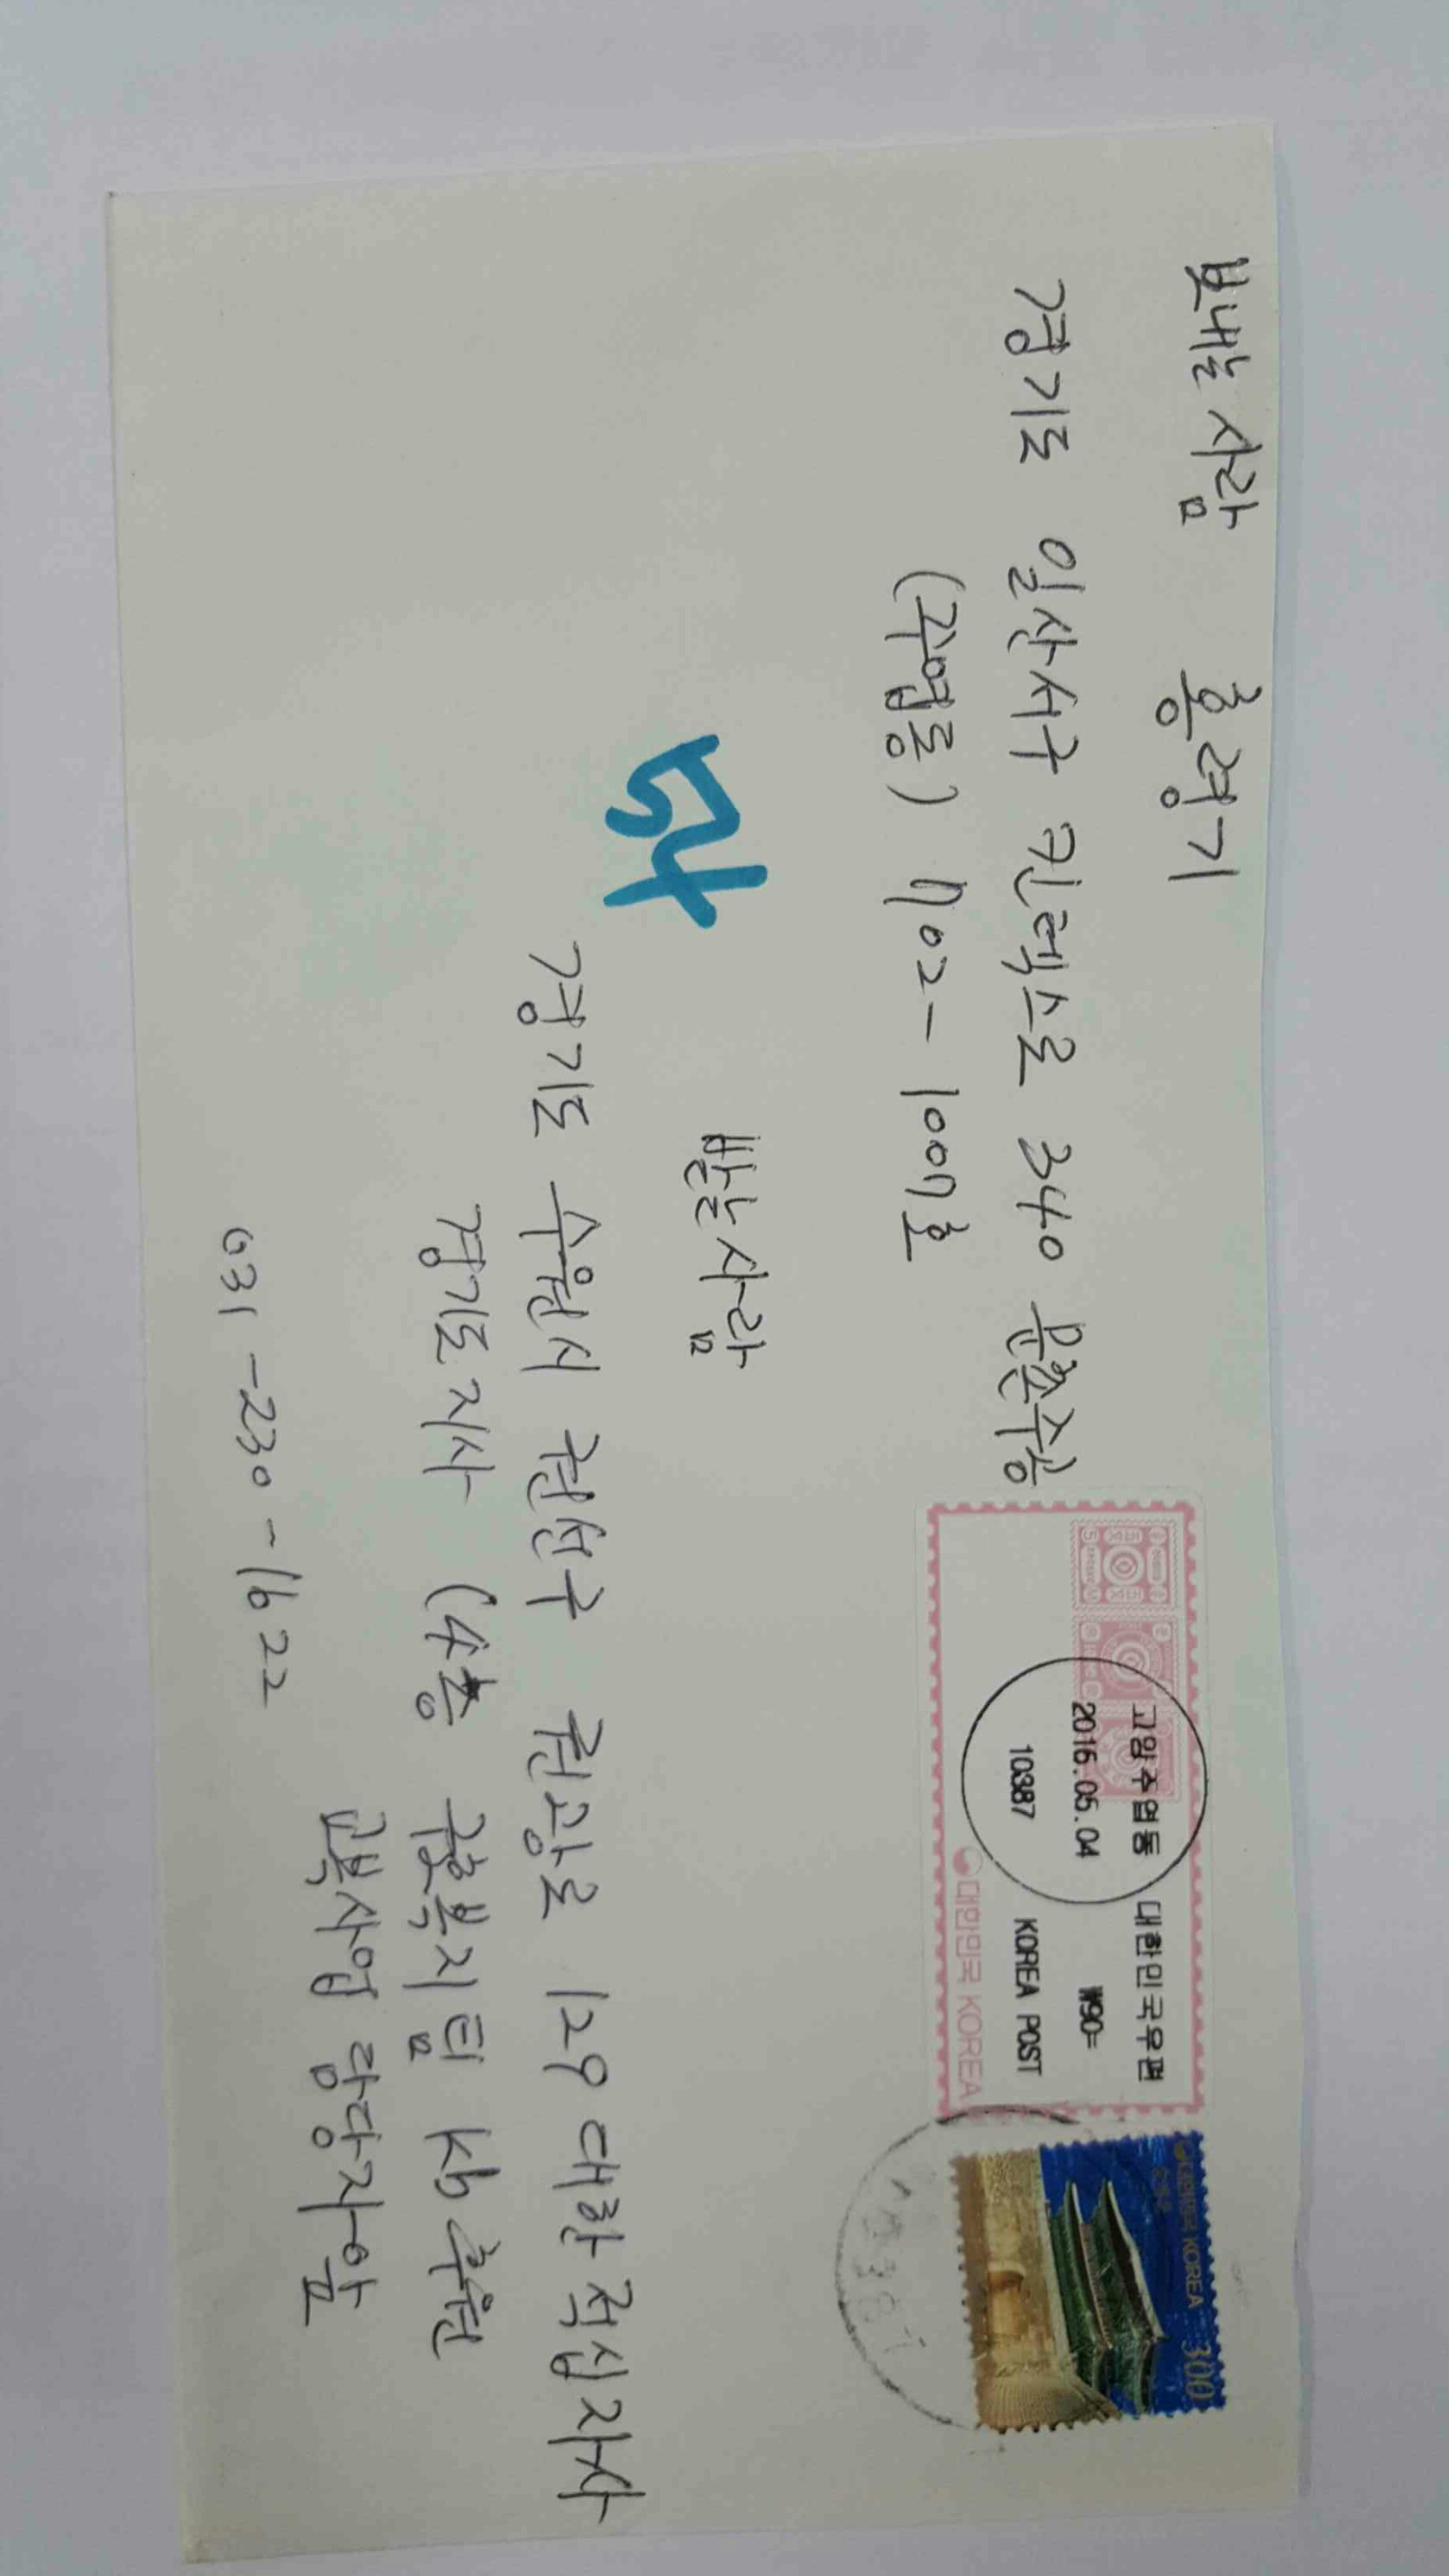 보내는 사람 홍영기
경기도 일산서구 킨텍스로 340 문촌주공
(주엽동) 702-1007호
고양주엽동 대한민국우편
2016.05.04 ₩90=
10387 KOREA POST
대한민국 KOREA
대한민국 KOREA 300
54
받는사람
경기도 수원시 권선구 권광로 129 대한적십자사
경기도지사 (4층 구호복지팀 LSD 후원
교복사업 담당자앞
031-230-1622